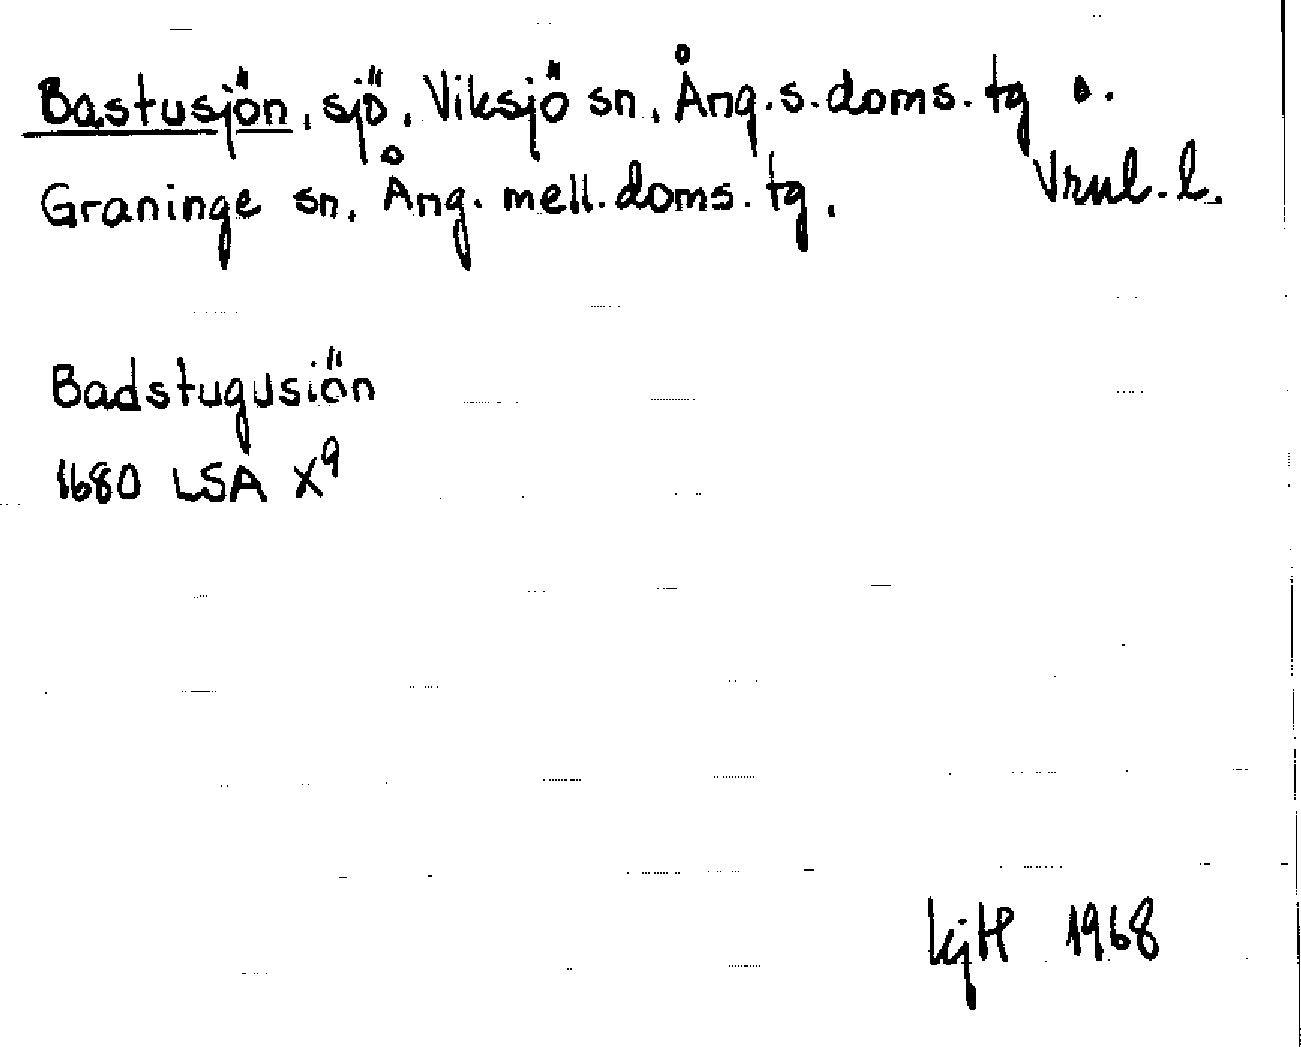 Bastusjön, sjö, Viksjö sn, Ång.s.doms.tg o.
Graninge sn, Ång. mell.doms.tg. Vrnl. l.
Badstugusiön
1680 LSA X9
KjH 1968